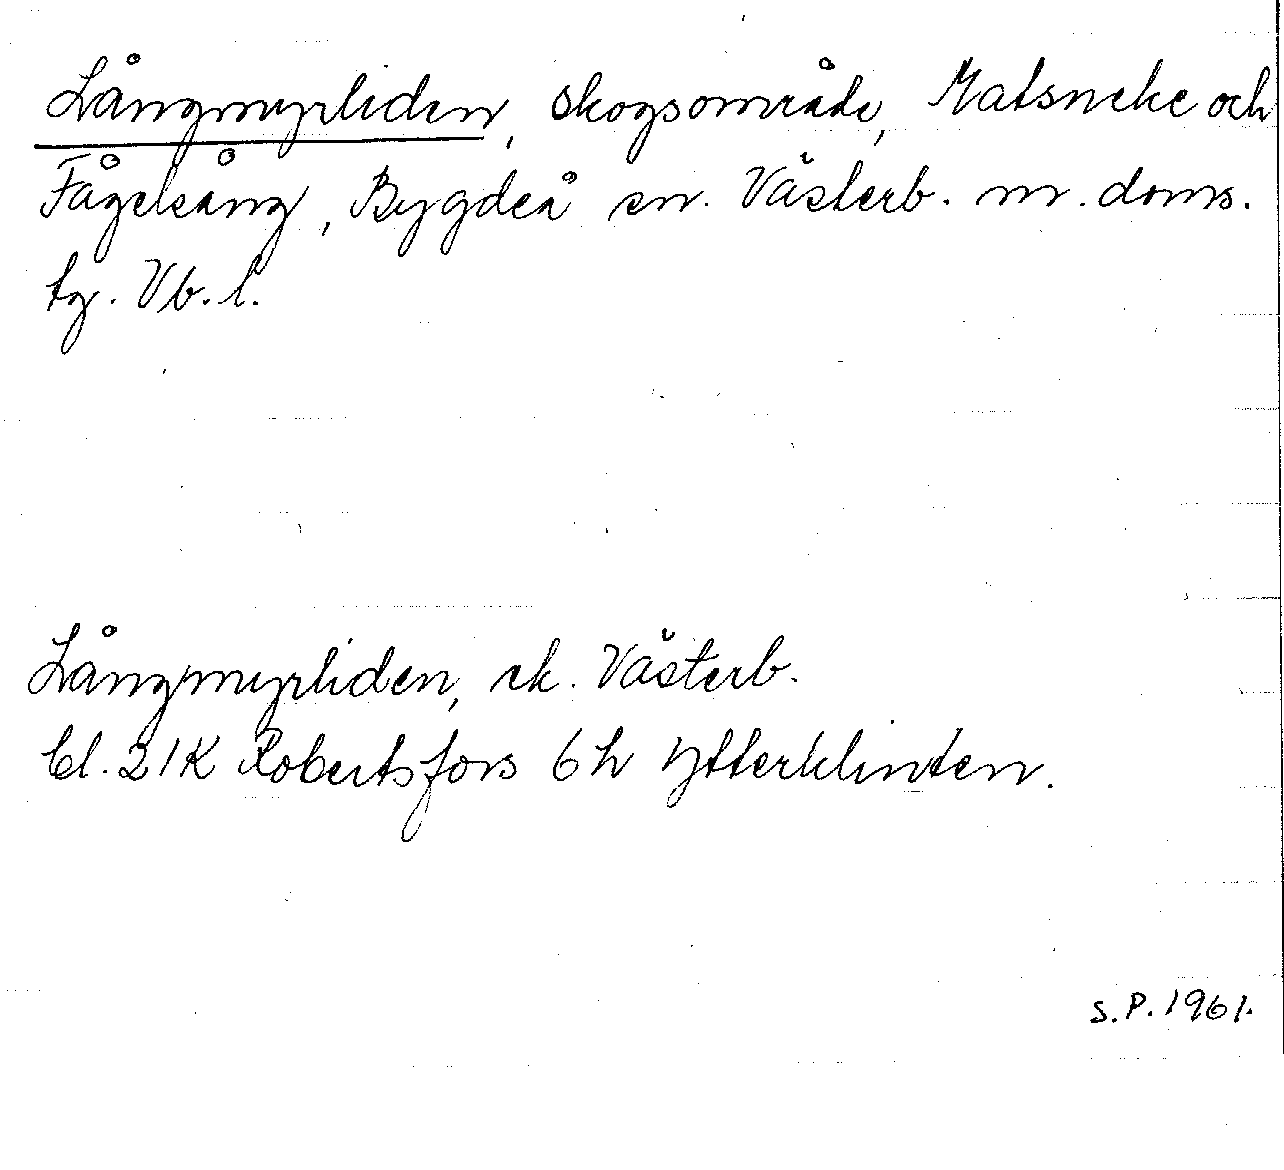 Långmyrliden, skogsområde, Matsneke och
Fågelsång, Bygdeå sn. Västerb. m. doms.
tg. Vb. l.
Långmyrliden, sk. Västerb.
bl. 21K Robertsfors 6h Ytterklinten.
S.P. 1961.